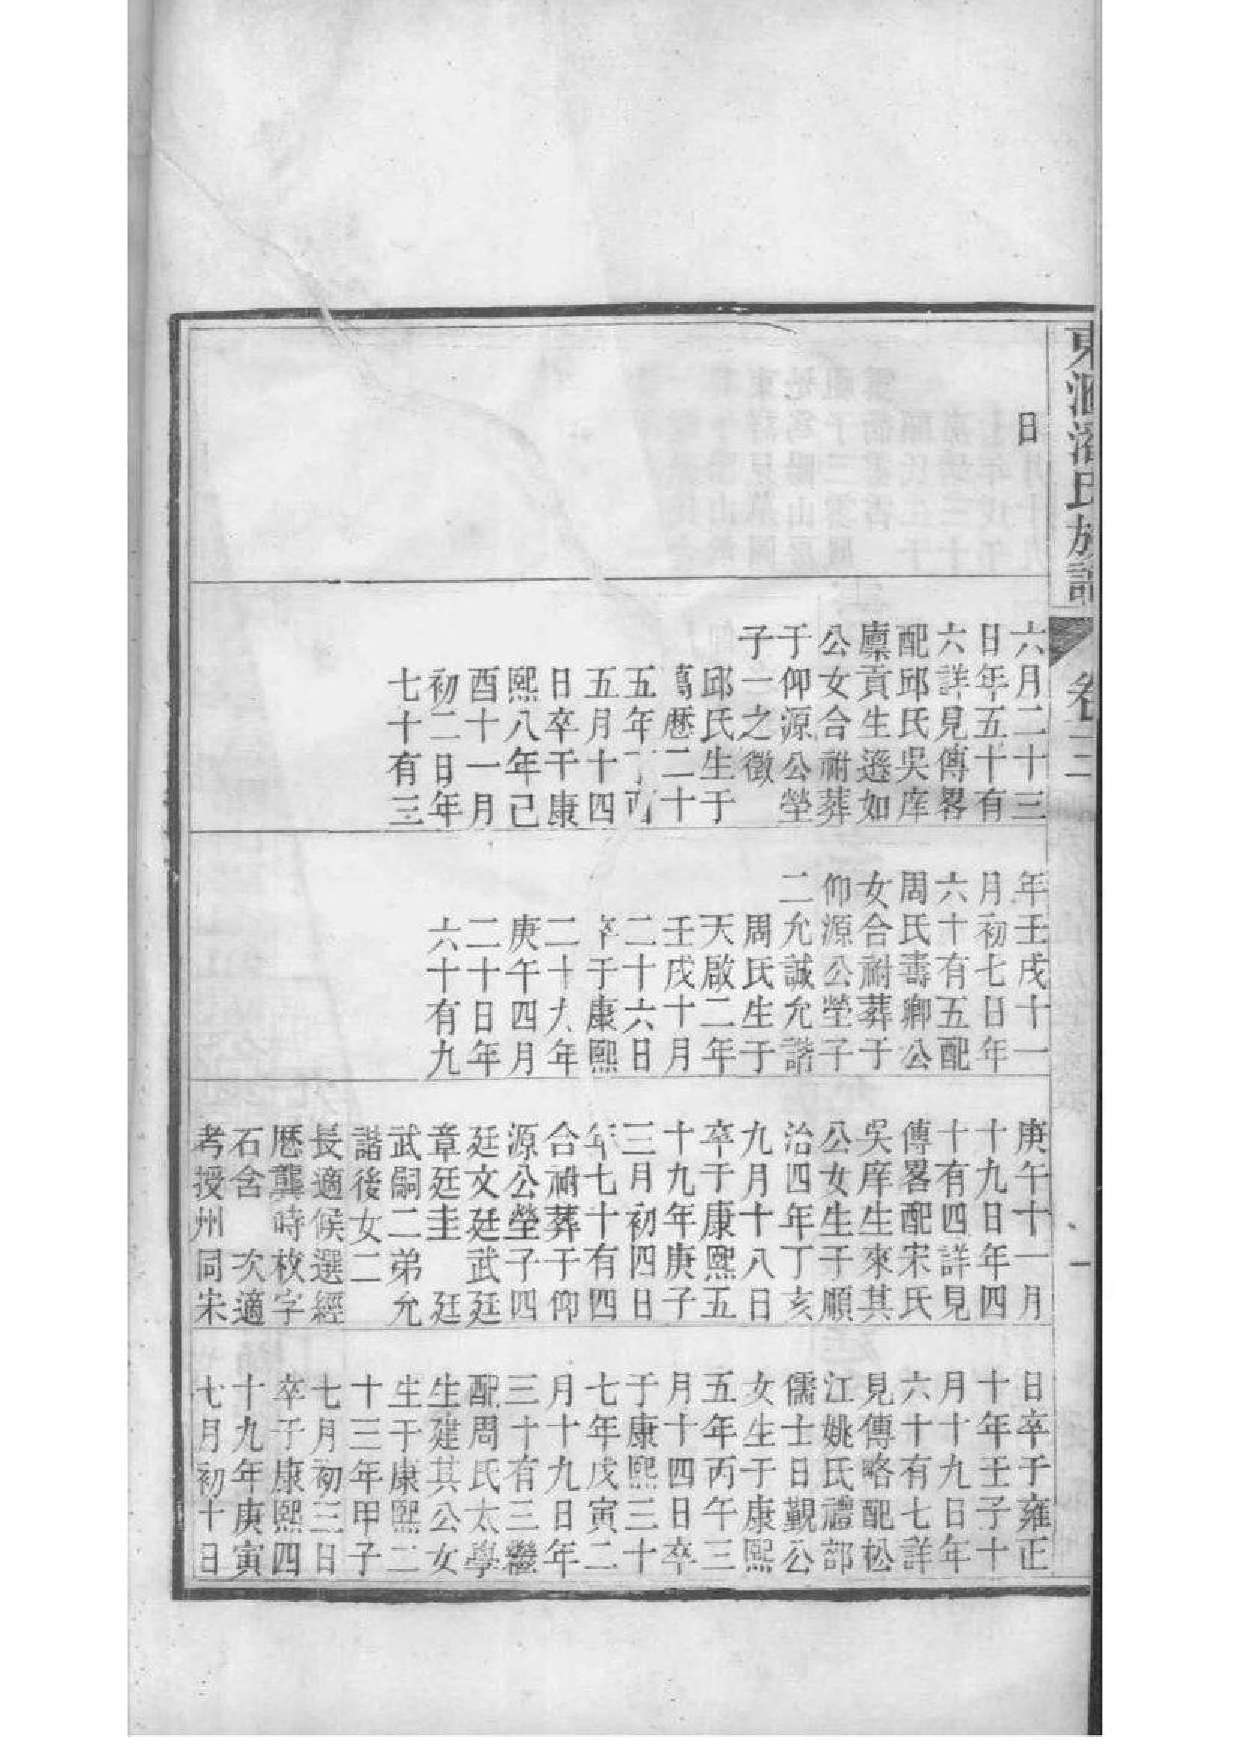 東匯潘氏族譜
卷二
一
日
六月二十三
日年五十有
六詳見傳畧
配邱氏吳庠
廩貢生遜如
公女合祔葬
于仰源公塋
子一之徵
邱氏生于
萬歷二十
五年丁酉
五月十四
日卒于康
熙八年己
酉十一月
初二日年
七十有三
年壬戌十一
月初七日年
六十有五配
周氏壽卿公
女合祔葬于
仰源公塋子
二允誠允諧
周氏生于
天啟二年
壬戌十月
二十六日
卒于康熙
二十九年
庚午四月
二十日年
六十有九
庚午十一月
十九日年四
十有四詳見
傳畧配宋氏
吳庠生來其
公女生于順
治四年丁亥
九月十八日
卒于康熙五
十九年庚子
三月初四日
年七十有四
合祔葬于仰
源公塋子四
廷文廷武廷
章廷圭 廷
武嗣二弟允
諧後女二
長適候選經
歷龔時枚字
石含 次適
考授州同宋
日卒于雍正
十年壬子十
月十九日年
六十有七詳
見傳略配松
江姚氏禮部
儒士日觀公
女生于康熙
五年丙午三
月十四日卒
于康熙三十
七年戊寅二
月十九日年
三十有三繼
配周氏太學
生建其公女
生于康熙二
十三年甲子
七月初三日
卒于康熙四
十九年庚寅
七月初十日